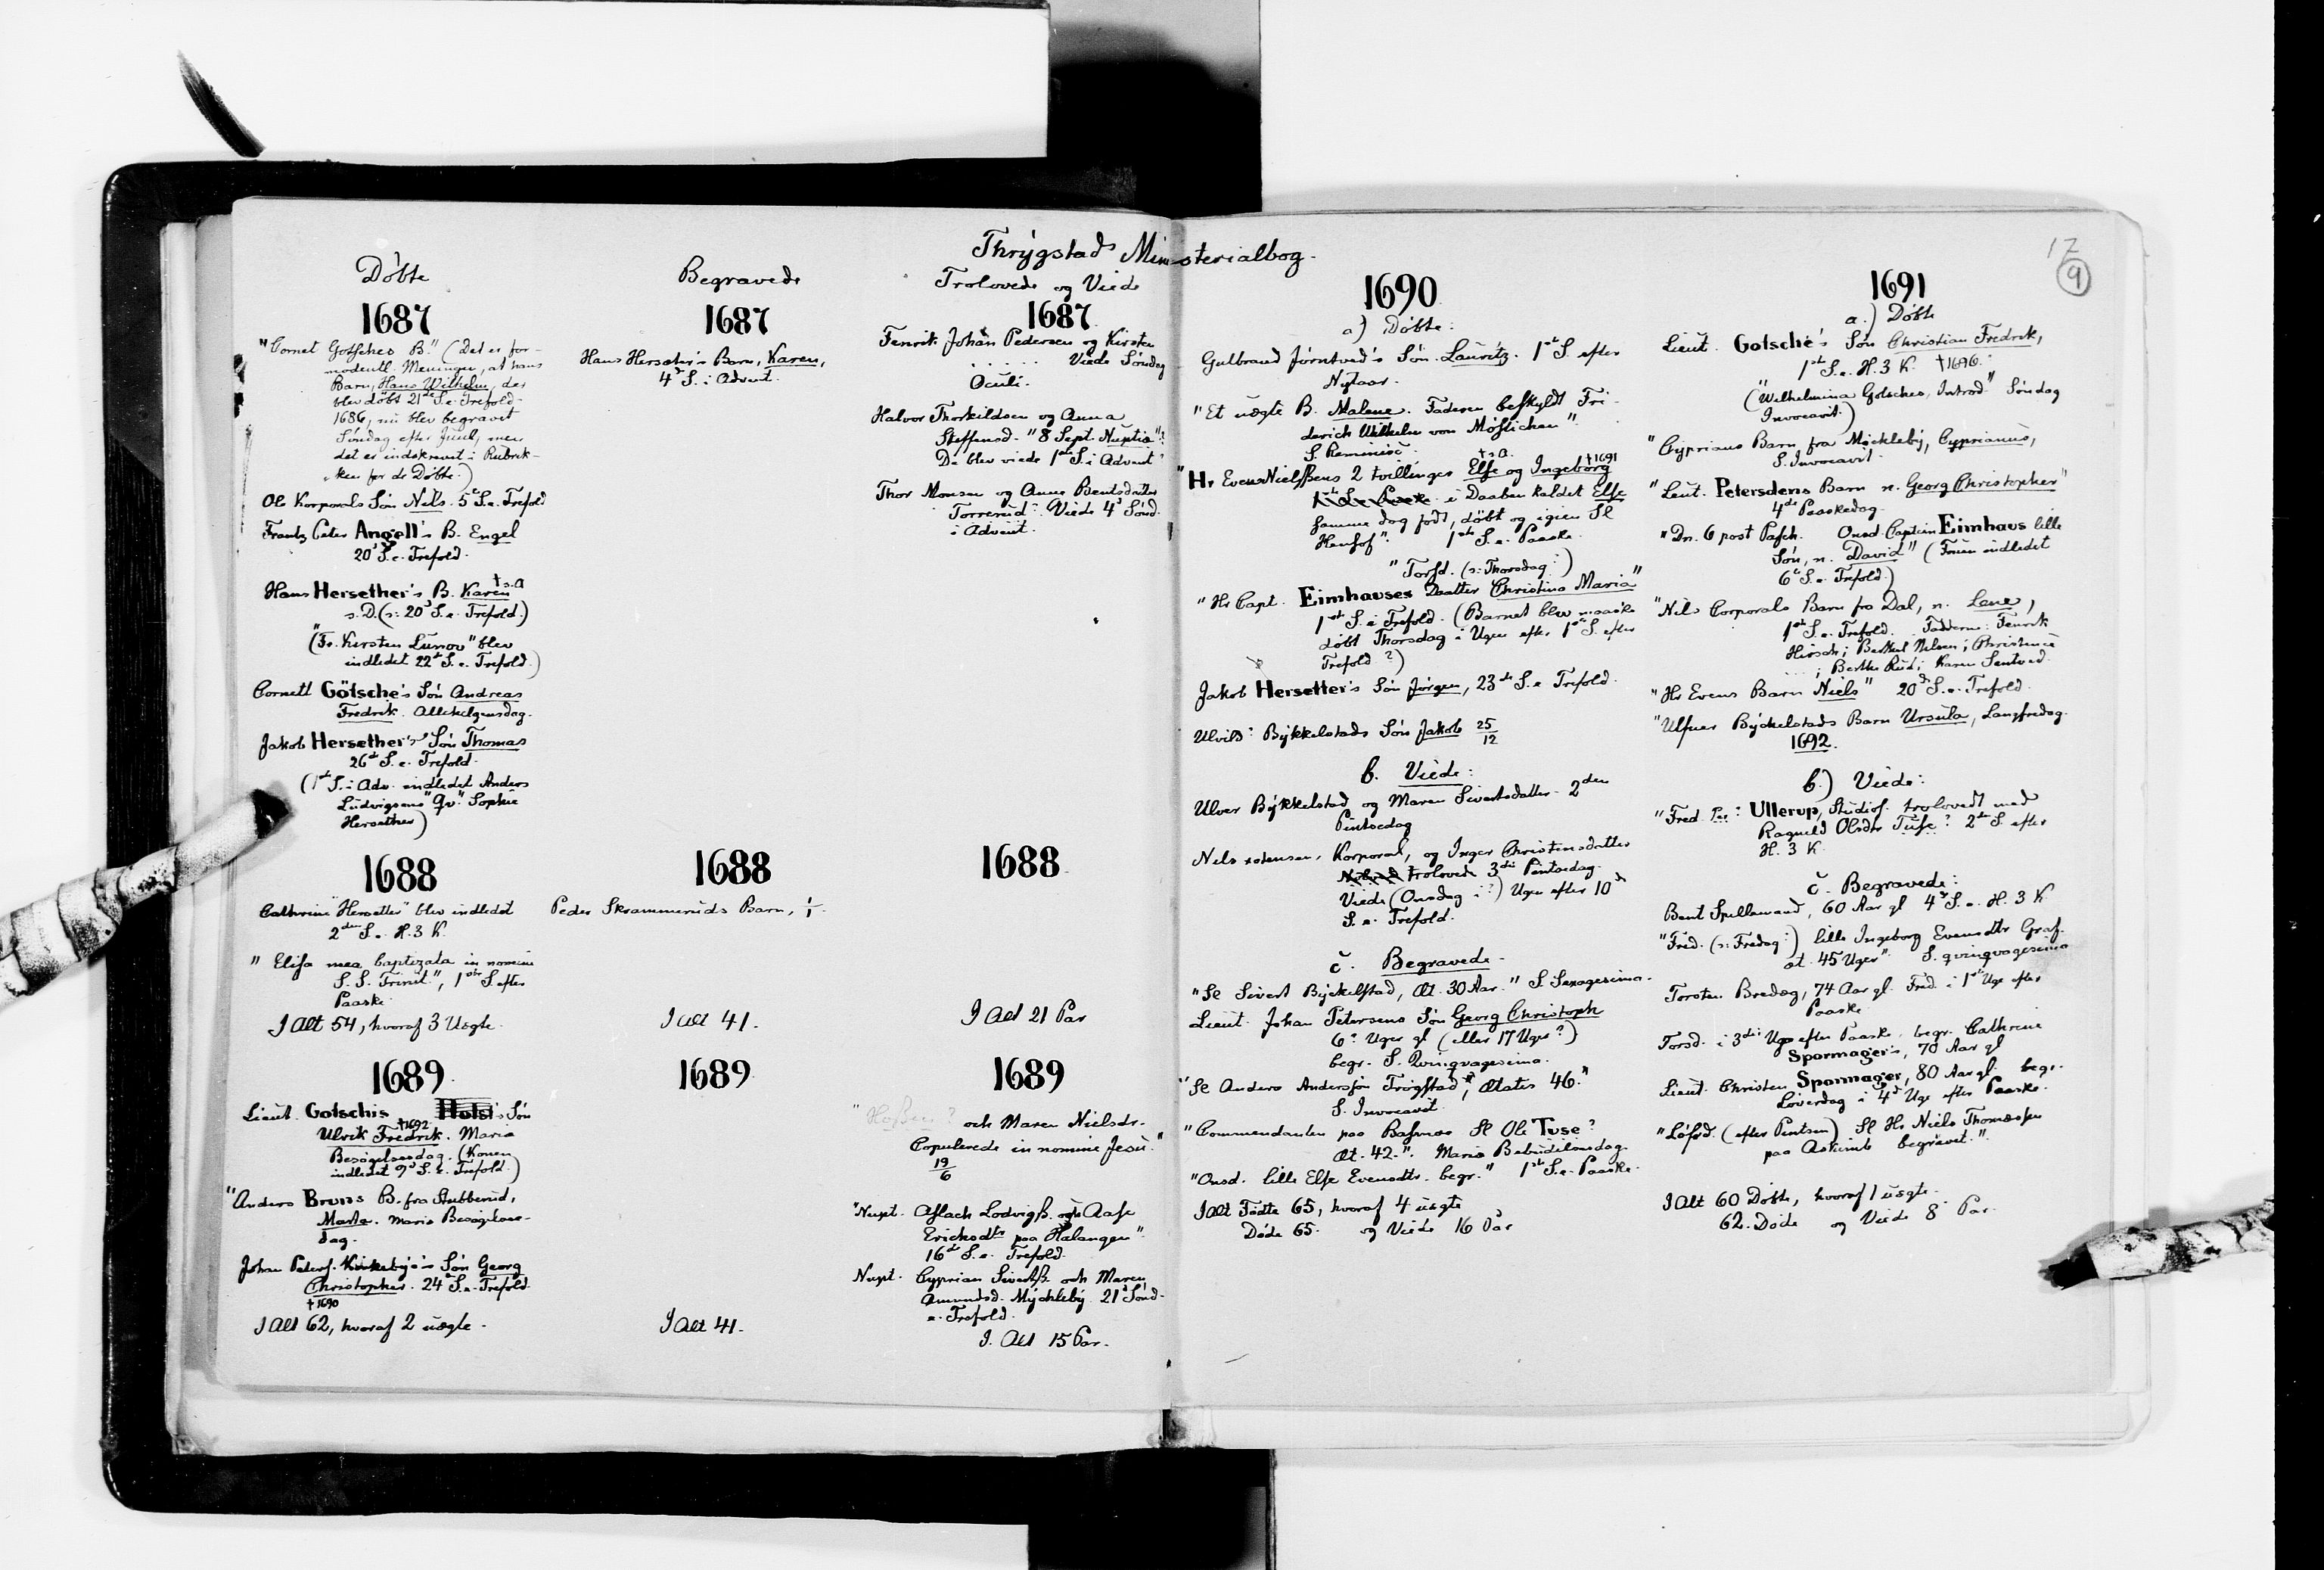 Thrygstads Ministerialbog.
17
9
Döbte
1687
"Cornet Gotsches B." (Det er for-
modentl. Meningen, at hans
Barn, Hans Wilhelm, der
blev döbt 21de S. e. Trefold.
1686, nu blev begravet
Söndag efter Juul, men
det er indskrevet i Rubrik-
ken for de Döbte.)
Ole Korporals Sön Nels. 5te S. e. Trefold
Frantz Peter Angell's B. Engel
20d S. e. Trefold.
Hans Hersether's B. Karen † s. A
s. D. (s: 20d S. e. Trefold.)
(Fr. Kirsten Lunov" blev
indledet 22d S. e. Trefold.)
Cornett Götsche's Sön Andreas
Fredrik. Allehelgensdag.
Jakob Hersether's Sön Thomas
26de S. e. Trefold.
(1ste S. i Adv. indledet Anders
Ludvigsens "Qv." Sophie
Hersether)
1688
Cathrine "Hersetter" blev indledet
2den S. e. H. 3 K.
" Elisa mea baptizata in nomine
S. S. Trinit", 1ste S. efter
Paaske.
I Alt 54, hvoraf 3 Uægte.
1689
Lieut. Gotschis Holst's Sön
Ulrik Fredrik. † 1692 Maria
Besögelsesdag. (Konen
indledet 9d S. e. Trefold.)
"Anders Bruns B. fra Stubberud,
Marte. Mariæ Besögelses-
dag.
Johan Peders. Kirkebye's Sön Georg
Christopher. 24d S. e. Trefold.
† 1690
I Alt 62, hvoraf 2 uægte.
Begravede
1687
Hans Herseter's Barn, Karen,
4d S. i Advent.
1688
Peder Skrammeruds Barn, 1/1.
I Alt 41.
1689
I Alt 41.
Trolovede og Viede
1687
Fenrik Johan Pedersen og Kirsten
. . . . . Viede Söndag
Oculi.
Halvor Thorkildsen og Anna
Steffensd. "8 Sept. Nuptia"?
De blev viede 1ste S. i Advent
Thor Monsen og Anne Bentsdatter
Torrerud. Viede 4d Sönd.
i Advent.
1688
I Alt 21 Par
1689
" och Maren Nielsdr.
Copulerede in nomine Jesu."
19/6
"Nupt. Aslach Lodvigss. och Aase
Ericksdtr paa Halangen".
16de S. e. Trefold.
Nupt. Cyprian Sivertss. och Maren
Amundsd. Mychleby 21d Sönd.
e. Trefold.
I. Alt 15 Par.
1690
a) Döbte:
Gulbrand Jörntved's Sön Lauritz. 1ste S. efter
Nytaar.
"Et uægte B. Malene. Faderen beskyldt Fri-
derich Wilhelm von Möslichen"
S. Reminisc.
"Hr Evens Nielssens 2 tvillinger Else † s. A. og Ingeborg † 1691
i Daaben kaldet Else
samme dag födt, döbt og igien Sl
1ste S. e. Paaske.
"Torsd. (s: Thorsdag:)
"Hr Capt. Eimhauses Daatter Christina Maria"
1ste S. e Trefold. (Barnet blev maaske
döbt Thorsdag i Ugen efter 1ste S. efter
Trefold?)
Jakob Hersetter's Sön Jörgen, 23de S. e Trefold.
Ulvild: Bykkelstads Sön Jakob 25/12
b. Viede:
Ulver Bykkelstad og Maren Sivertsdatter. 2den
Pintsedag
Korporal, og Inger Christensdatter
trolovede 3die Pintsedag.
Viede (Onsdag i?) Ugen efter 10d
S. e. Trefold.
c. Begravede.
"Sl Sivert Byckelstad, Æt. 30 Aar." S. Sexagesima.
Lieut. Johan Petersens Sön Georg Christoph
6? Uger gl (eller 17 Uger?)
begr. S. Qvinqvagesima.
"Sl Anders Andersön Trögstad", Ætatis 46."
S. Invocavit.
"Commendanten paa Basmoe Sl Ole Tuse?
Æt. 42." Mariæ Bebudelsesdag.
"Onsd. lille Else Evensdtr. begr." 1ste S. e. Paaske.
I Alt Födte 65, hvoraf 4 uægte
Döde 65. og Viede 16 Par
1691
a.) Döbte
Lieut. Gotsche's Sön Christian Fredrik,
1ste S. e. H. 3 K. † 1696.
("Wilhelmina Gotsches, Introd." Söndag
Invocavit.)
"Cyprians Barn fra Mickleby, Cyprianus,
S. Invocavit.
"Leut. Petersdens Barn n. Georg Christopher"
4de Paaskedag.
"Dn. 6 post Pasch. Onsd. Captein Eimhaus lille
Sön, n. David" (Fruen indledet
6te S. e. Trefold.)
"Nils Corporals Barn fra Dal, n. Lene,
1ste S. e. Trefold. Fadderne: Fenrik
Hirsch; Berthel Nilsen; Christence
. . . ; Berthe Rud; Karen Santved.
"Hr Evens Barn Niels" 20de S. e. Trefold.
"Ulfuer Byckelstads Barn Ursula, Langfredag.
1692.
b.) Viede:
"Fred. Ullerup, Studios. trolovedt med
Ragnild Olsdtr Tuse? 2de S. efter
H. 3 K.
c. Begravede:
Bent Spillemand, 60 Aar gl 4d S. e. H. 3 K
"Fred. (s: Fredag:) lille Ingeborg Evensdtr Graf.
æt. 45 Uger". S. qvinqvagesima
Torsten Bredæg, 74 Aar gl. Fred. i 1ste Uge efter
Paaske
Torsd. i 3die Uge efter Paaske begr. Cathrine
Spormager's, 70 Aar gl
Lieut. Christen Spormager, 80 Aar gl. begr.
Löverdag i 4d Uge efter Paaske.
"Löfved. (efter Pintsen) Sl Hr Niels Thomæssen
paa Askimb begravet."
I Alt 60 Döbte, hvoraf 1 uægte.
62. Döde og Viede 8 Par.